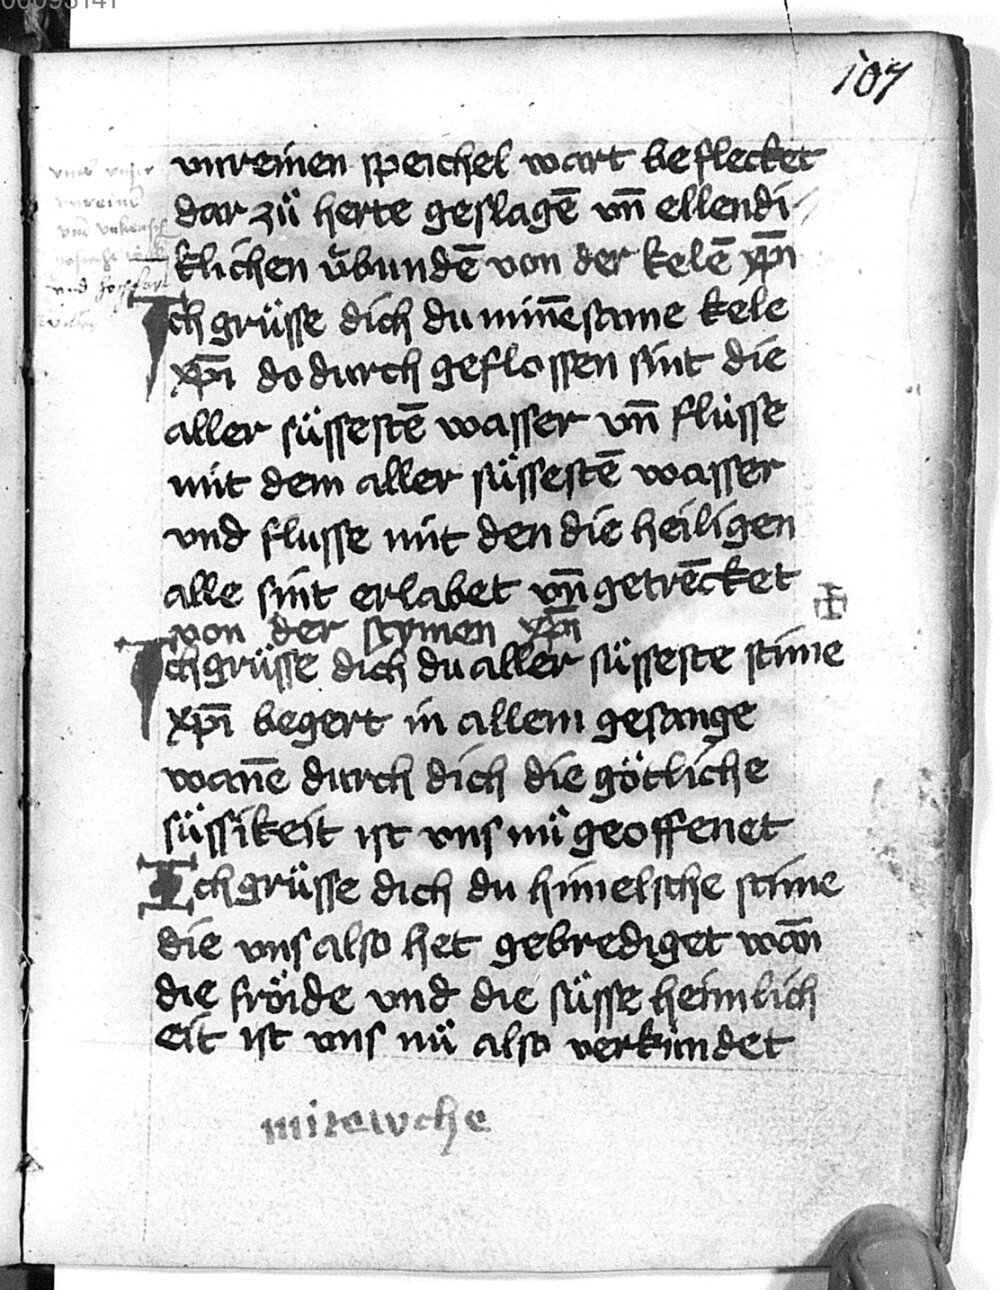 00093141
107
vnreinen speichel wart beflecket
dar zü herte geslagē vn̄ ellendi-
klichen v̈bundē von der kelē xp̄i
Ich grüsse dich du min̄esame kele
xp̄i do durch geflossen sint die
aller süssestē wasser vn̄ flüsse
mit dem aller süssestē wasser
vnd flusse mit den die heiligen
alle sint erlabet vn̄ getrēcket
von der stymen xp̄i
Ich grüsse dich du aller süsseste stime
xp̄i begert in allem gesange
wan̄e durch dich die götliche
süssikeit ist vns nü geoffenet
Ich grüsse dich du himelsche stime
die vns also het gebrediget wan̄
die fröide vnd die süsse heimlich
eit ist vns nü also verkündet
mitewche
vnd hoffart